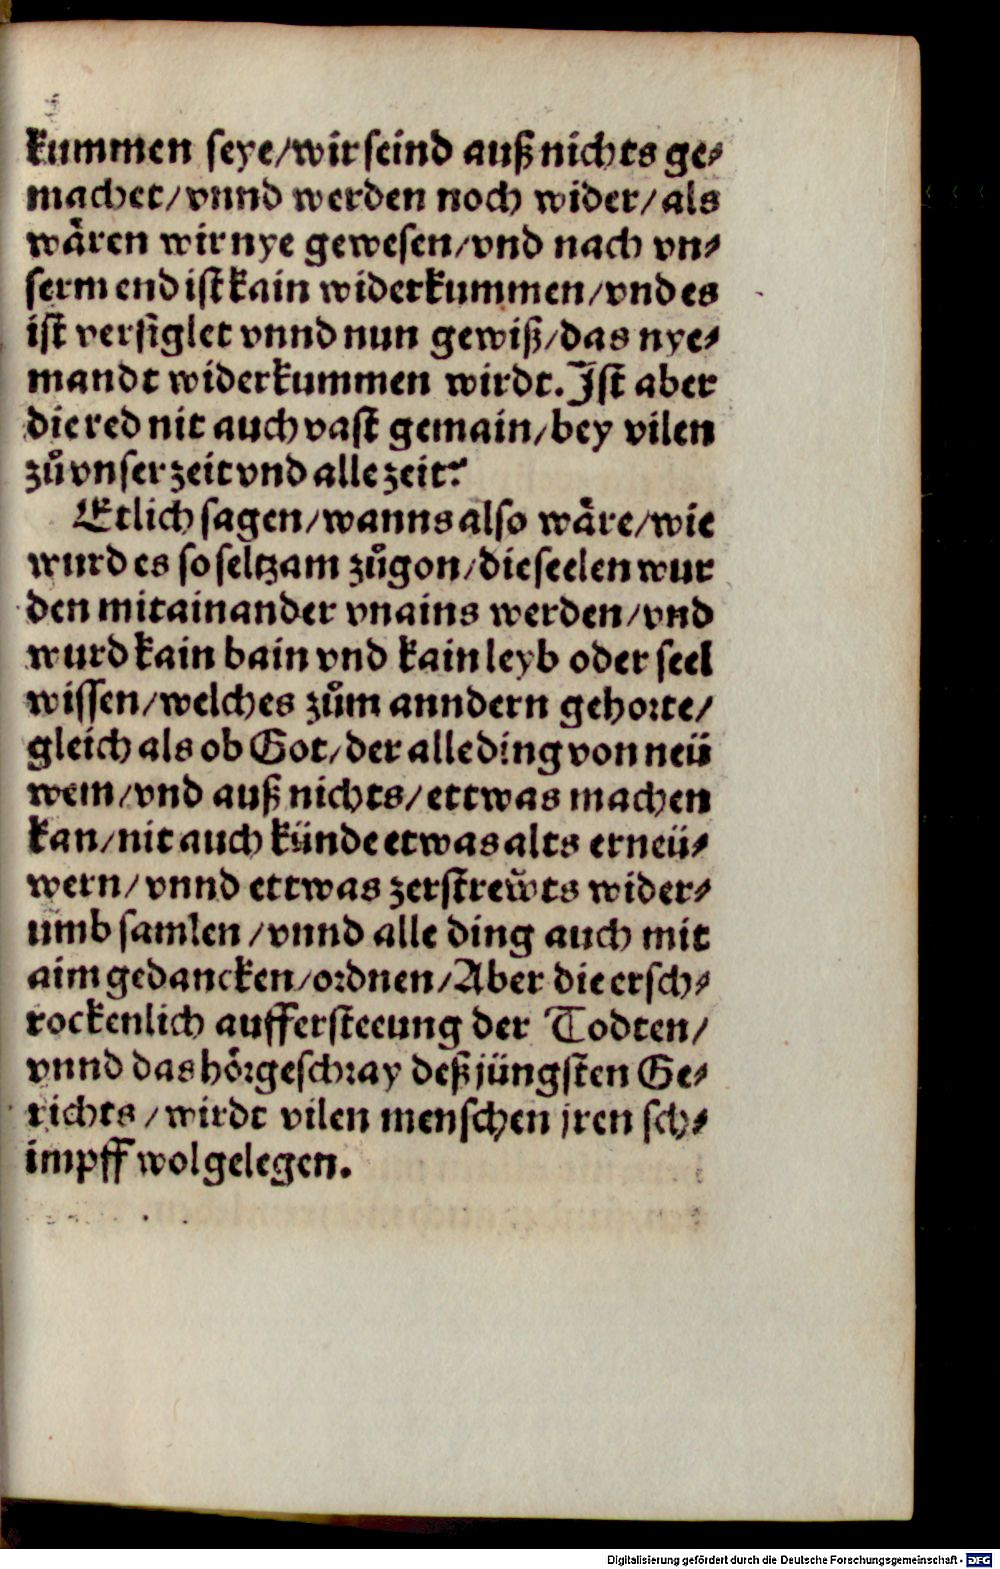 kummen seye/wir seind auß nichts ge⸗
machet/vnnd werden noch wider/als
wären wir nye gewesen/vnd nach vn⸗
serm end ist kain widerkummen/vnd es
ist versiglet vnnd nun gewiß/das nye⸗
mandt widerkummen wirdt. Ist aber
die red nit auch vast gemain/bey vilen
zů vnser zeit vnd alle zeit?
Etlich sagen/wanns also wäre/wie
wurd es so seltzam zůgon/die seelen wur
den mitainander vnains werden/vnd
wurd kain bain vnd kain leyb oder seel
wissen/welches zům anndern gehorte/
gleich als ob Got/der alle ding von neü
wem/vnd auß nichts/ettwas machen
kan/nit auch künde etwas alts erneü⸗
wern/vnnd ettwas zerstrewts wider⸗
umb samlen/vnnd alle ding auch mit
aim gedancken/ordnen/Aber die ersch⸗
rockenlich aufferstecung der Todten/
vnnd das hörgeschray deß jüngsten Ge⸗
richts/wirdt vilen menschen jren sch⸗
impff wol gelegen.
Digitalisierung gefördert durch die Deutsche Forschungsgemeinschaft - DFG